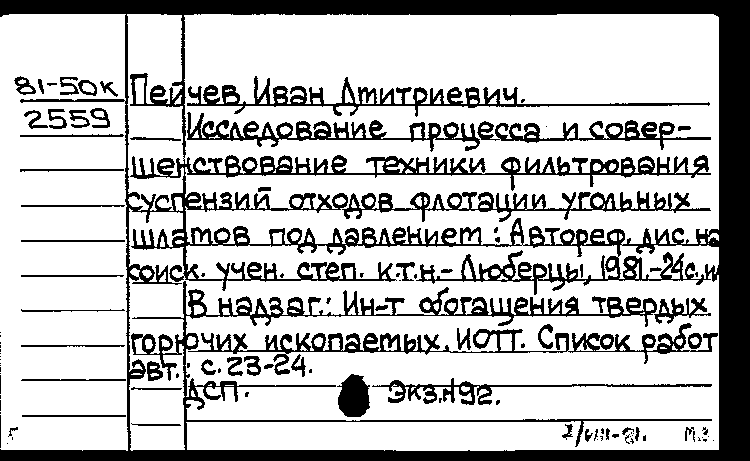 81-50к
2559
Пейчев, Иван Дмитриевич.
Исследование процесса и совер-
шенствование техники фильтрования
суспензий отходов флотации угольных
шламов под давлением : Автореф. дис. на
соиск. учен. степ. к.т.н.- Люберцы, 1981.-24с., ил
В надзаг.: Ин-т обогащения твердых
горючих ископаемых. ИОТТ. Список работ
авт.: с. 23-24.
ДСП. Экз.№92.